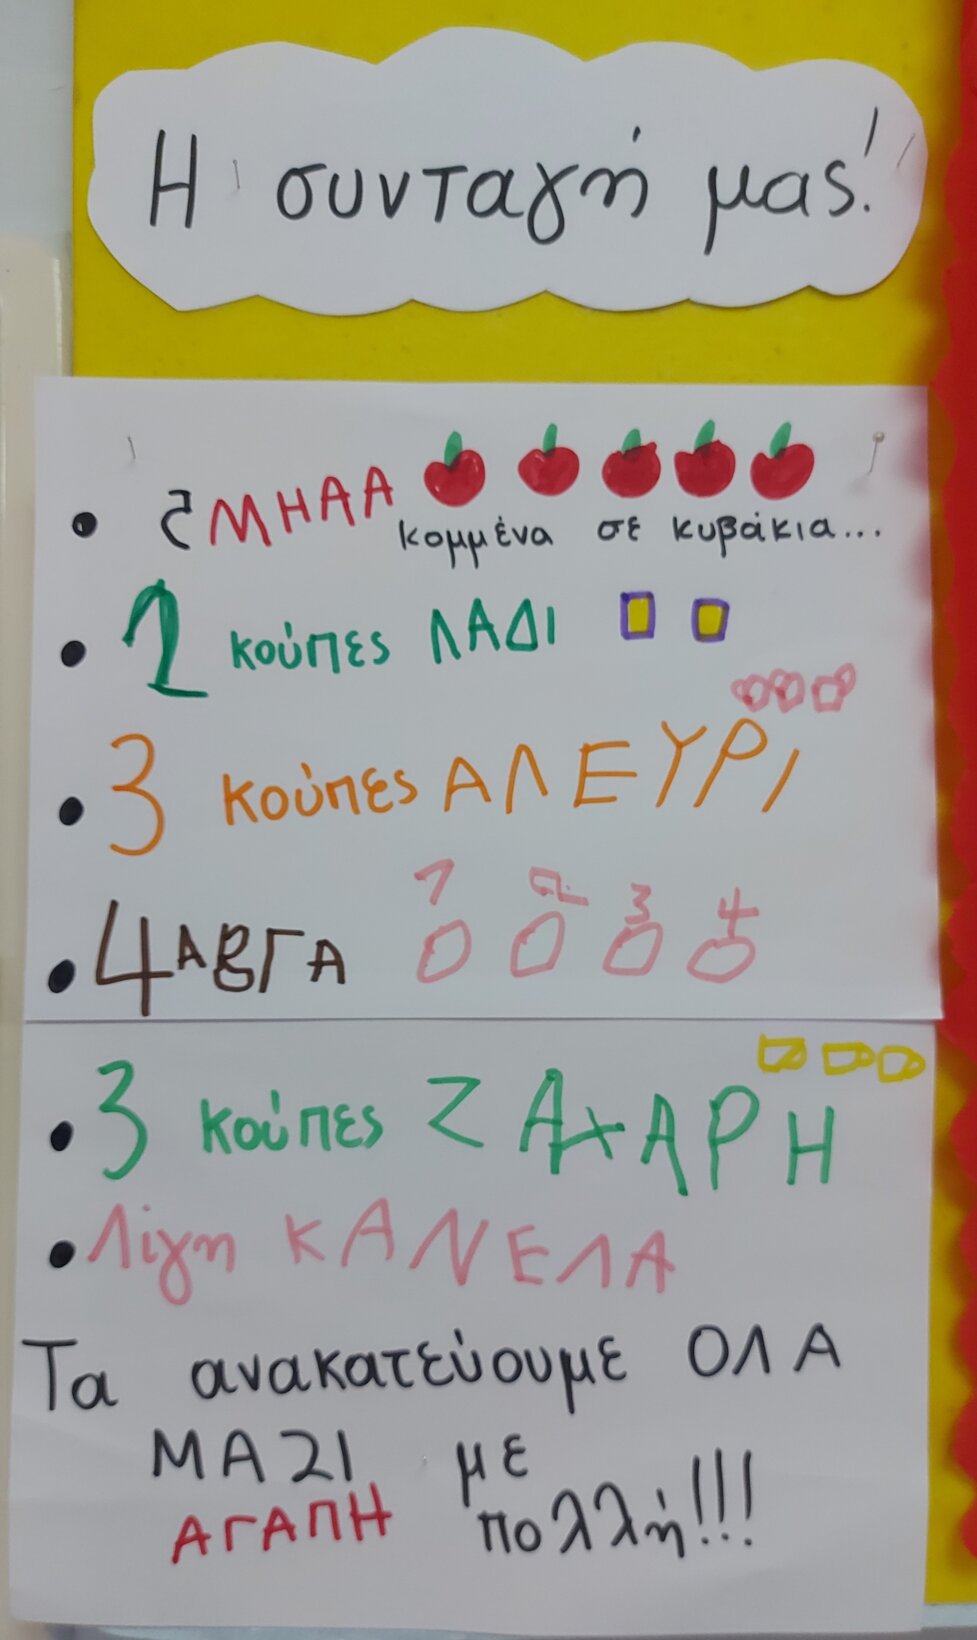 Η συνταγή μας!
• 5 ΜΗΛΑ
κομμένα σε κυβάκια...
• 2 κούπες ΛΑΔΙ
• 3 κούπες ΑΛΕΥΡΙ
1 2 3 4
• 4 ΑΒΓΑ
• 3 κούπες ΖΑΧΑΡΗ
• Λίγη ΚΑΝΕΛΑ
Τα ανακατεύουμε ΟΛΑ
ΜΑΖΙ με
ΑΓΑΠΗ πολλή!!!